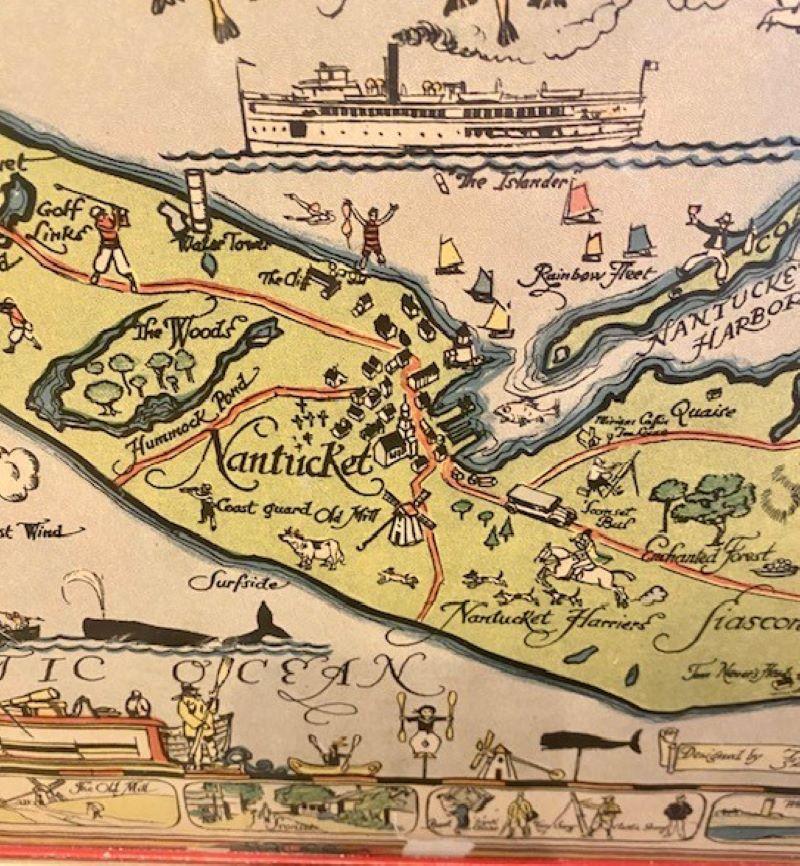 The Islander
Golf
Links
Water Tower
The Cliff
Rainbow Fleet
NANTUCKE
HARBOR
The Woods
Hummock Pond
Quaise
Nantucket
Coast guard
Old Mill
Bus
st Wind
Enchanted Forest
Surfside
Nantucket Harriers
Siascon
Tom Never's Head
TIC OCEAN
Designed by
The Old Mill